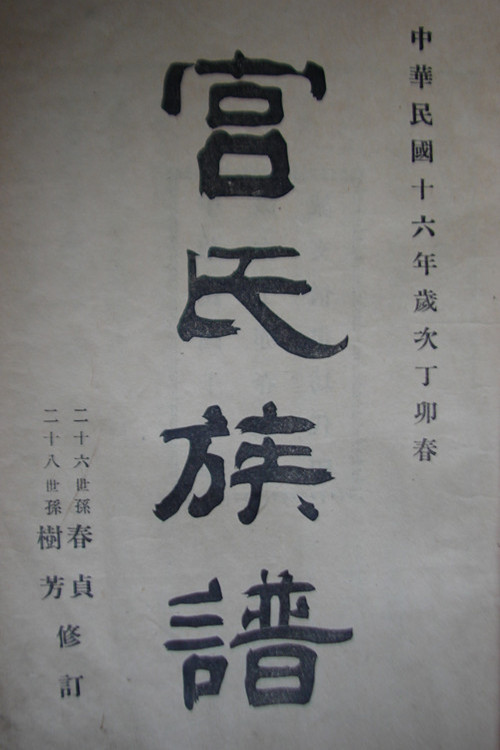 中華民國十六年歲次丁卯春
宮氏族譜
二十六世孫春貞
二十八世孫樹芳
修訂